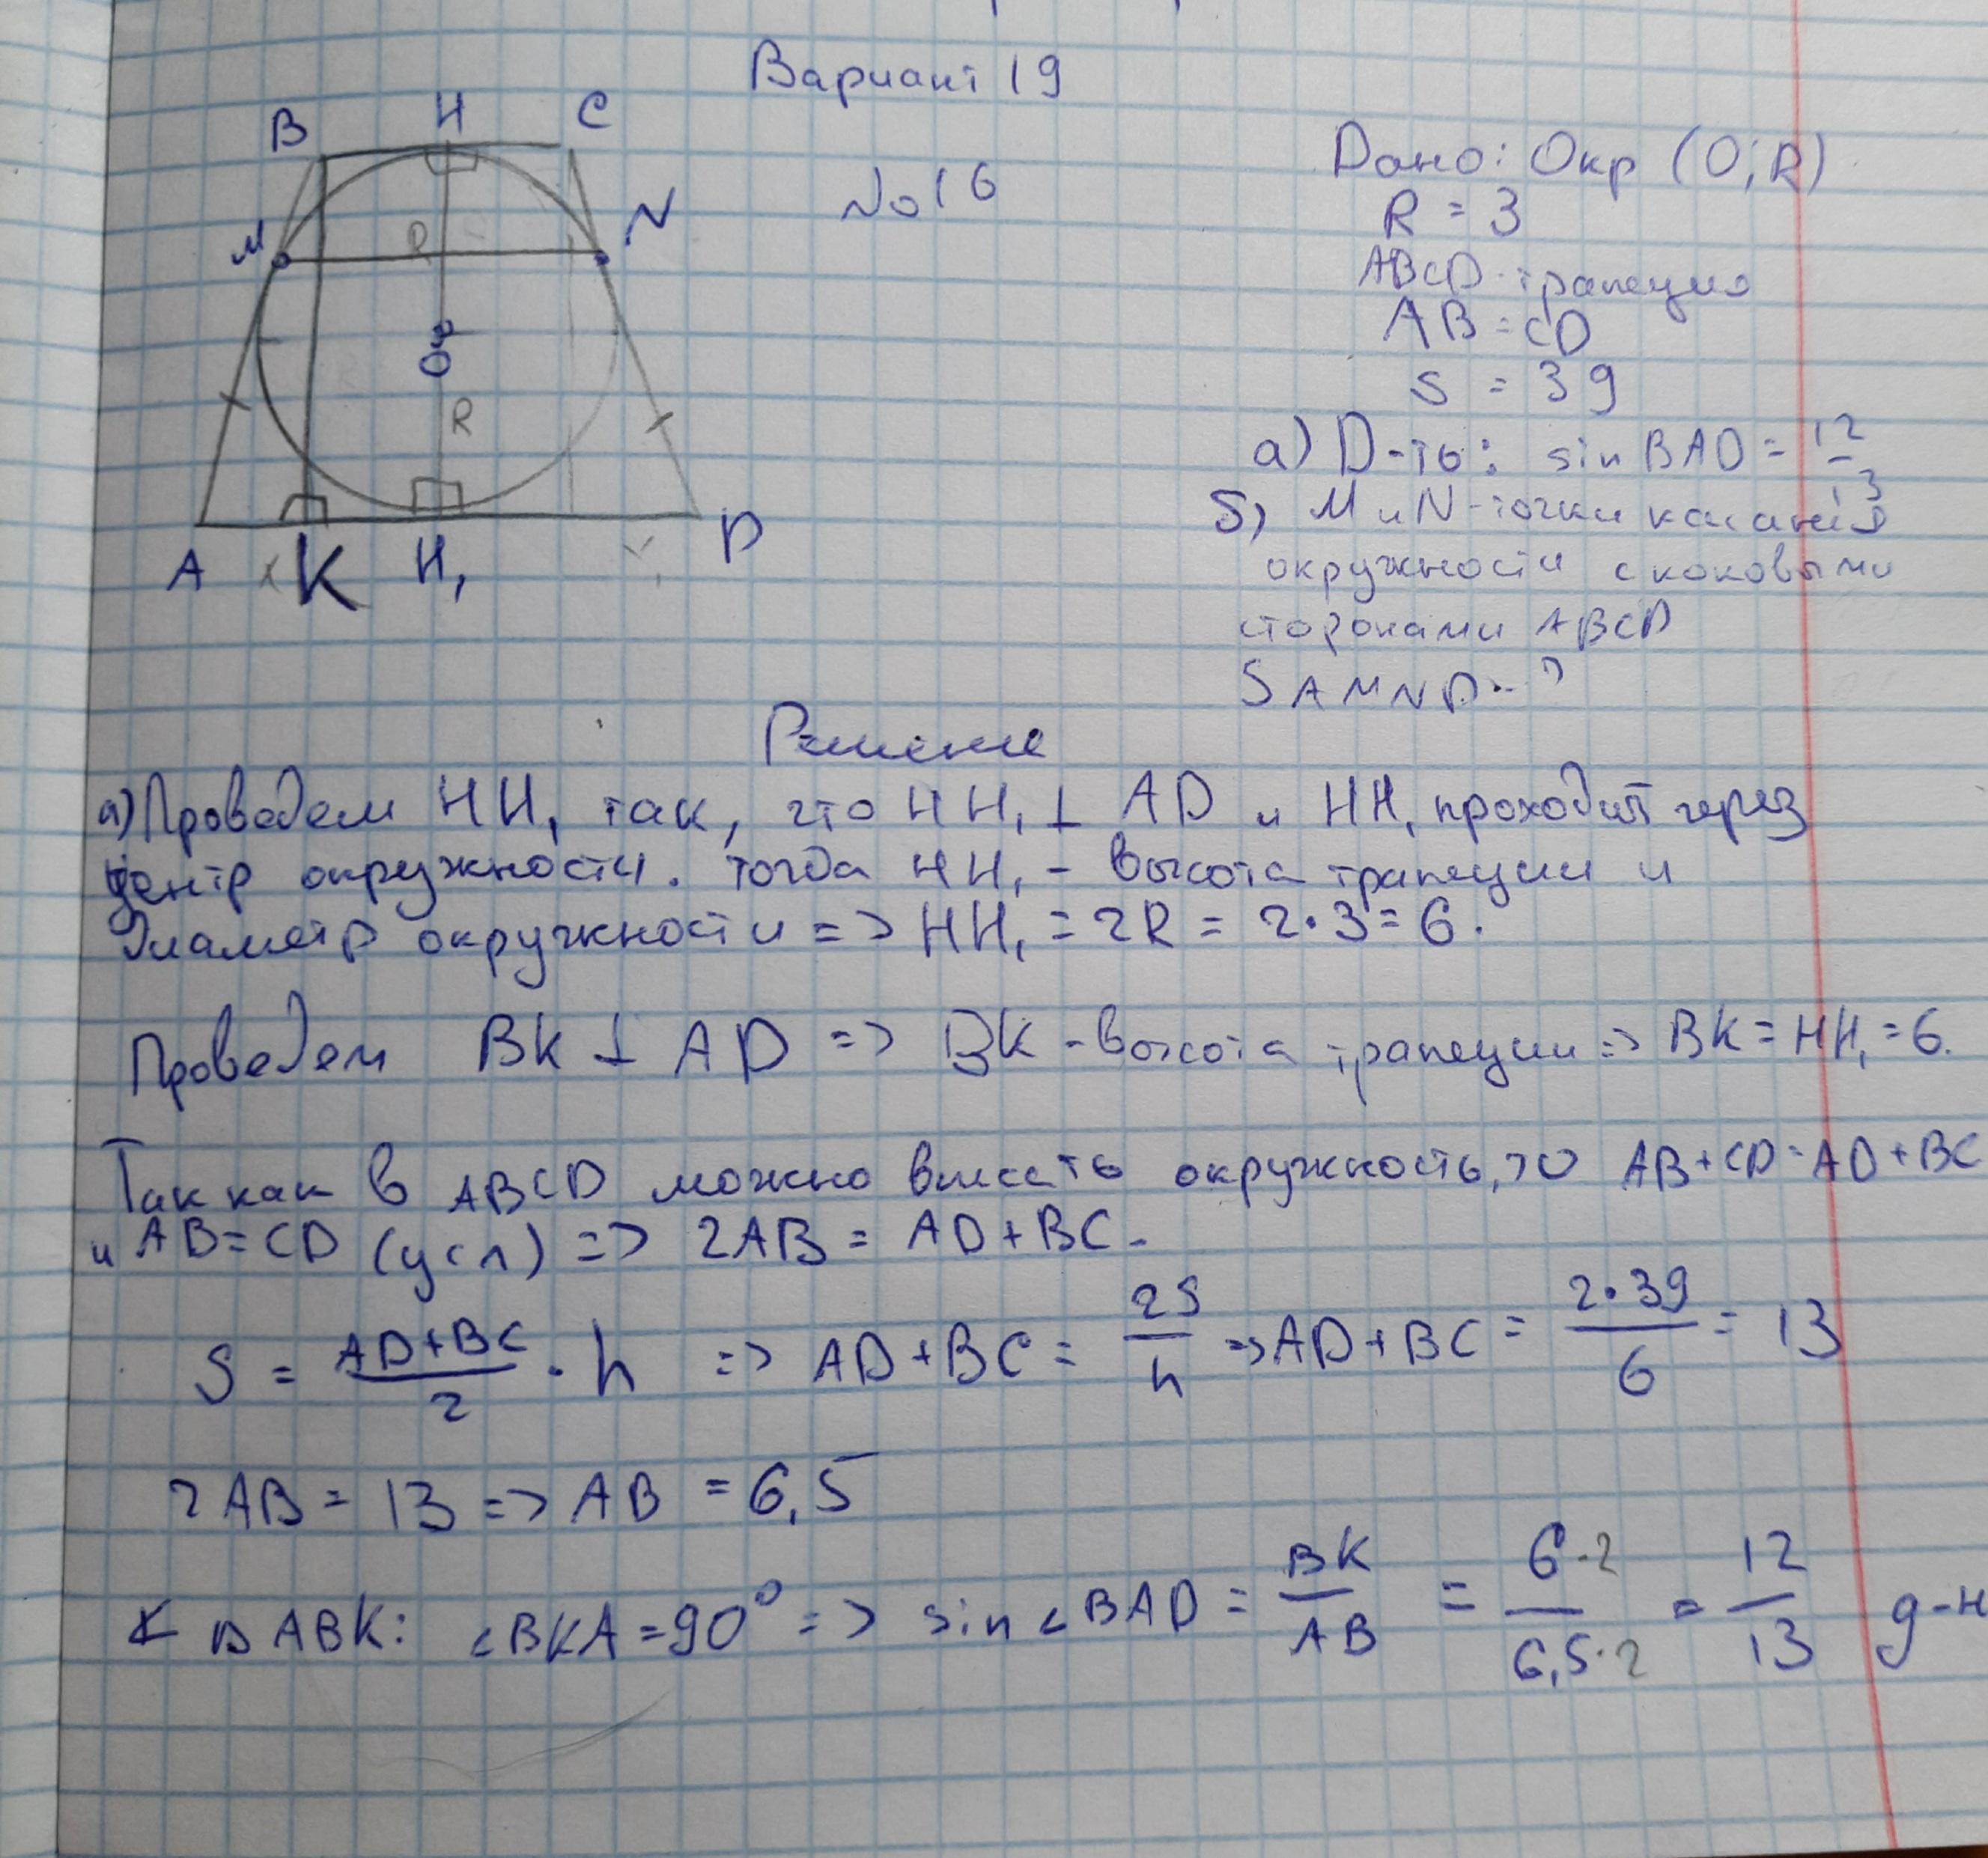 Вариант 19
№16
B H C
M N
R
O
R
A K H₁ D
Дано: Окр (O; R)
R = 3
ABCD - трапеция
AB = CD
S = 39
а) D-ть: sin BAD = 12/13
б) M и N - точки касания
окружности с боковыми
сторонами ABCD
S AMND - ?
Решение
а) Проведем HH₁ так, что HH₁ ⊥ AD и HH₁ проходит через
центр окружности. Тогда HH₁ - высота трапеции и
диаметр окружности => HH₁ = 2R = 2·3 = 6.
Проведем BK ⊥ AD => BK - высота трапеции => BK = HH₁ = 6.
Так как в ABCD можно вписать окружность, то AB + CD = AD + BC
и AB = CD (усл) => 2AB = AD + BC.
S = (AD+BC)/2 · h => AD + BC = 2S/h => AD + BC = 2·39/6 = 13
2AB = 13 => AB = 6,5
△ ABK: ∠BKA = 90° => sin ∠BAD = BK/AB = 6·2/6,5·2 = 12/13 g-н